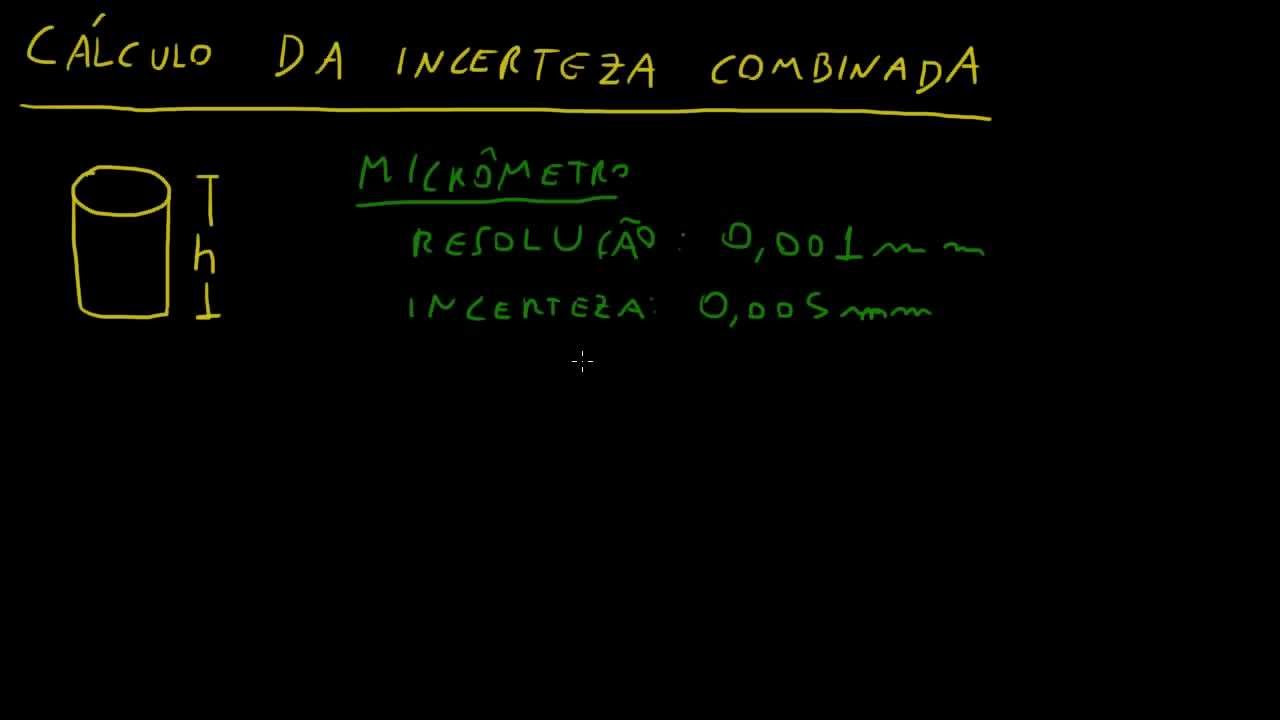 CÁLCULO DA INCERTEZA COMBINADA
MICRÔMETRO
RESOLUÇÃO: 0,001mm
h
INCERTEZA: 0,005mm